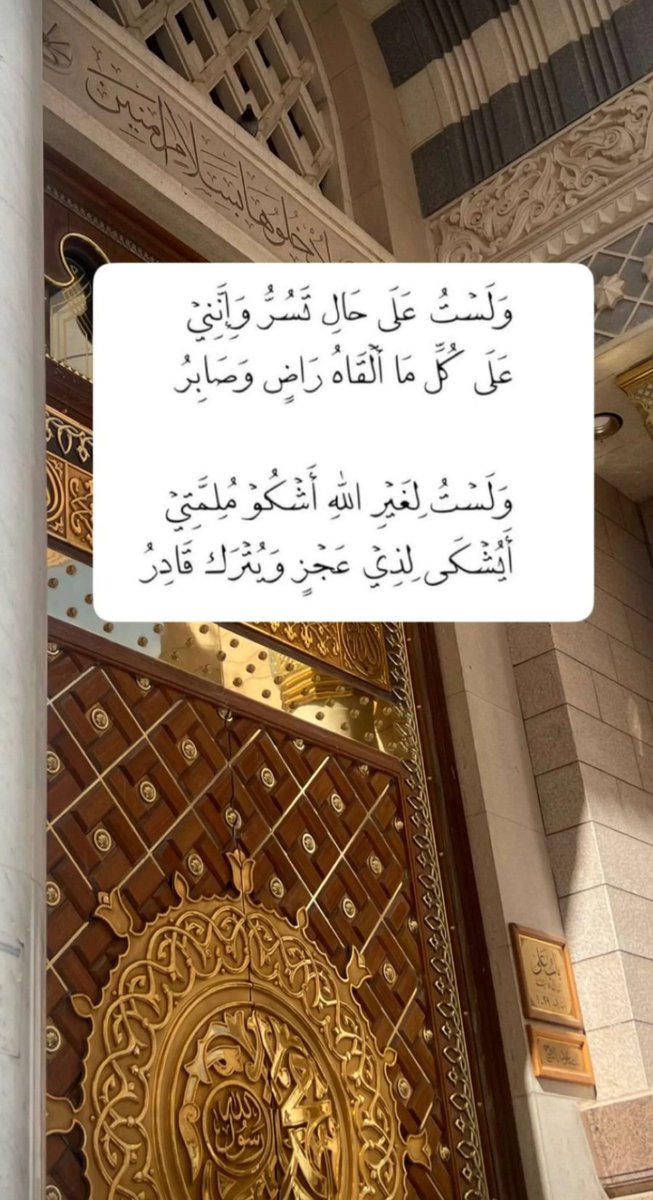 ادخلوها بسلام امنين
وَلَسْتُ عَلَى حَالٍ تَسُرُّ وَإِنَّنِيْ
عَلَى كُلِّ مَا أَلْقَاهُ رَاضٍ وَصَابِرُ
وَلَسْتُ لِغَيْرِ اللهِ أَشْكُوْ مُلِمَّتِيْ
أَيُشْكَى لِذِيْ عَجْزٍ وَيُتْرَك قَادِرُ
رسول الله